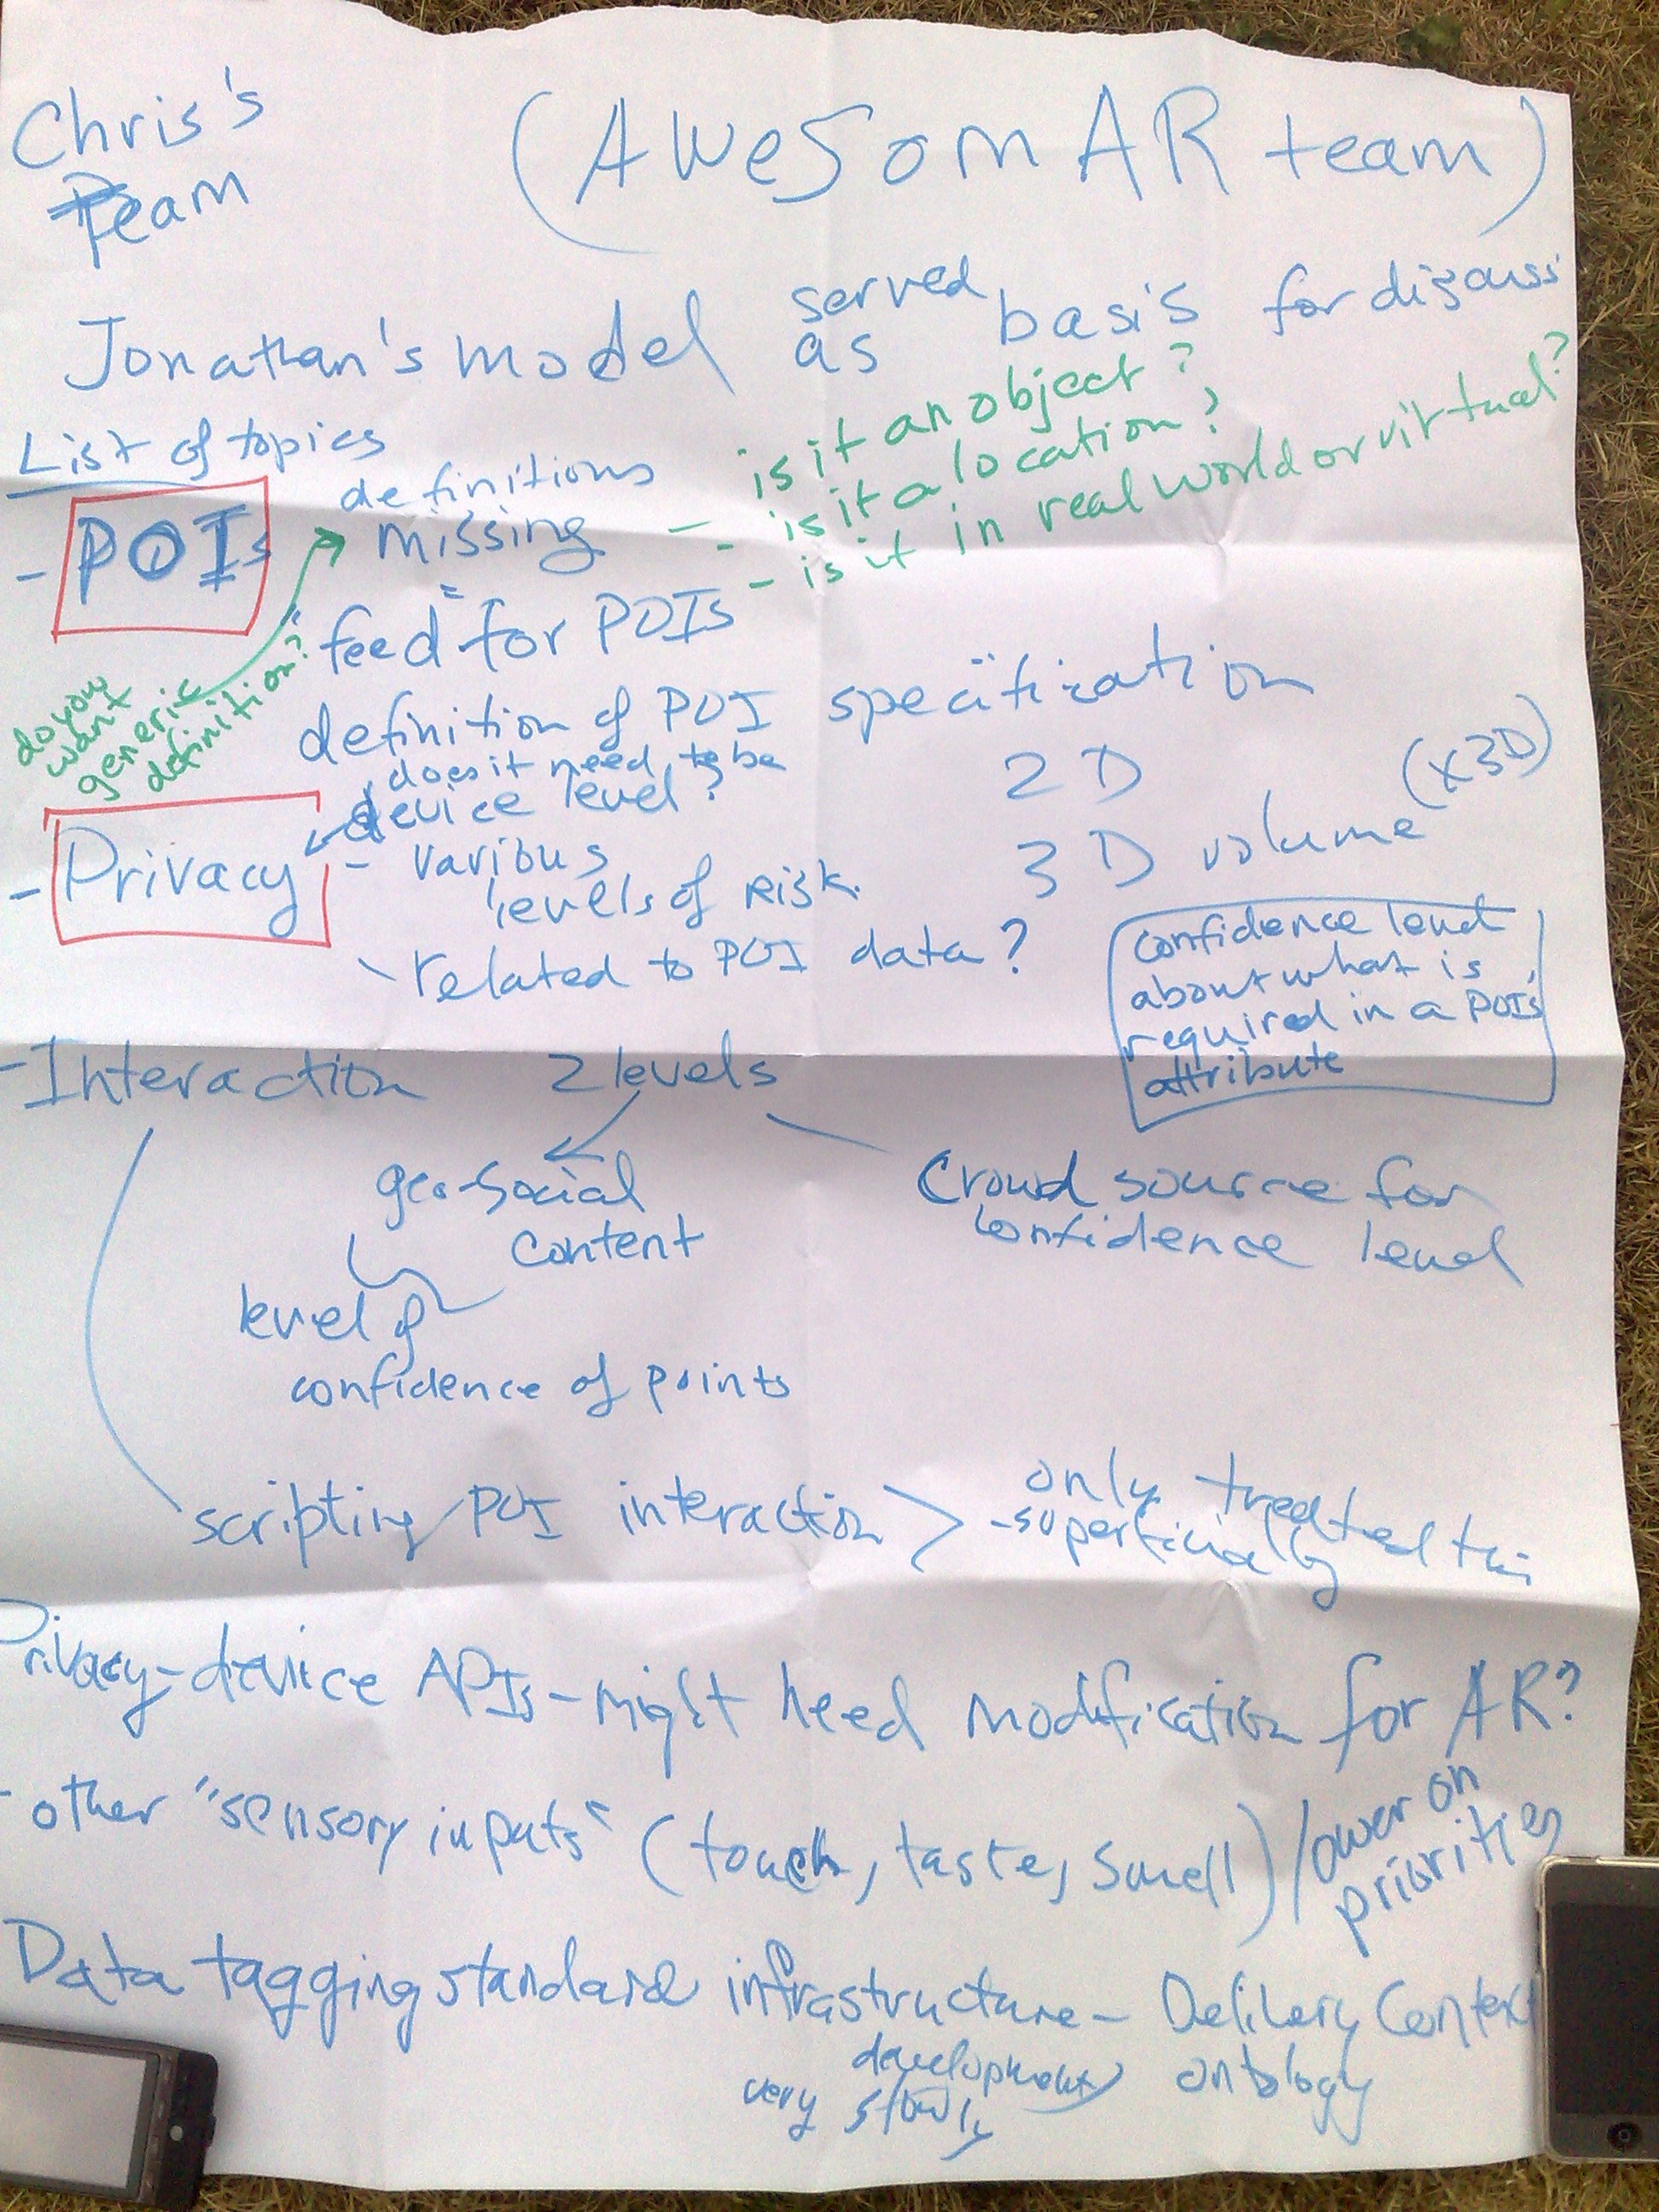 Chris's
Team
(AWeSom AR team)
Jonathan's model served as basis for discuss
List of topics
- POIs
definitions
missing
- is it an object?
- is it a location?
- is it in real world or virtual?
do you
want
generic
definition?
"feed" for POIs
definition of POI specification
2D
3D volume (X3D)
- Privacy
does it need to be
device level?
- various
levels of risk
related to POI data?
confidence level
about what is
required in a POIs'
attribute
- Interaction 2 levels
geo-social
content
level of
confidence of points
Crowd source for
confidence level
scripting POI interaction > only treated this
- superficially
Privacy - device APIs - might need modification for AR?
- other "sensory inputs" (touch, taste, smell) lower on
priorities
Data tagging standard infrastructure - Delivery Context
ontology
development
very slowly